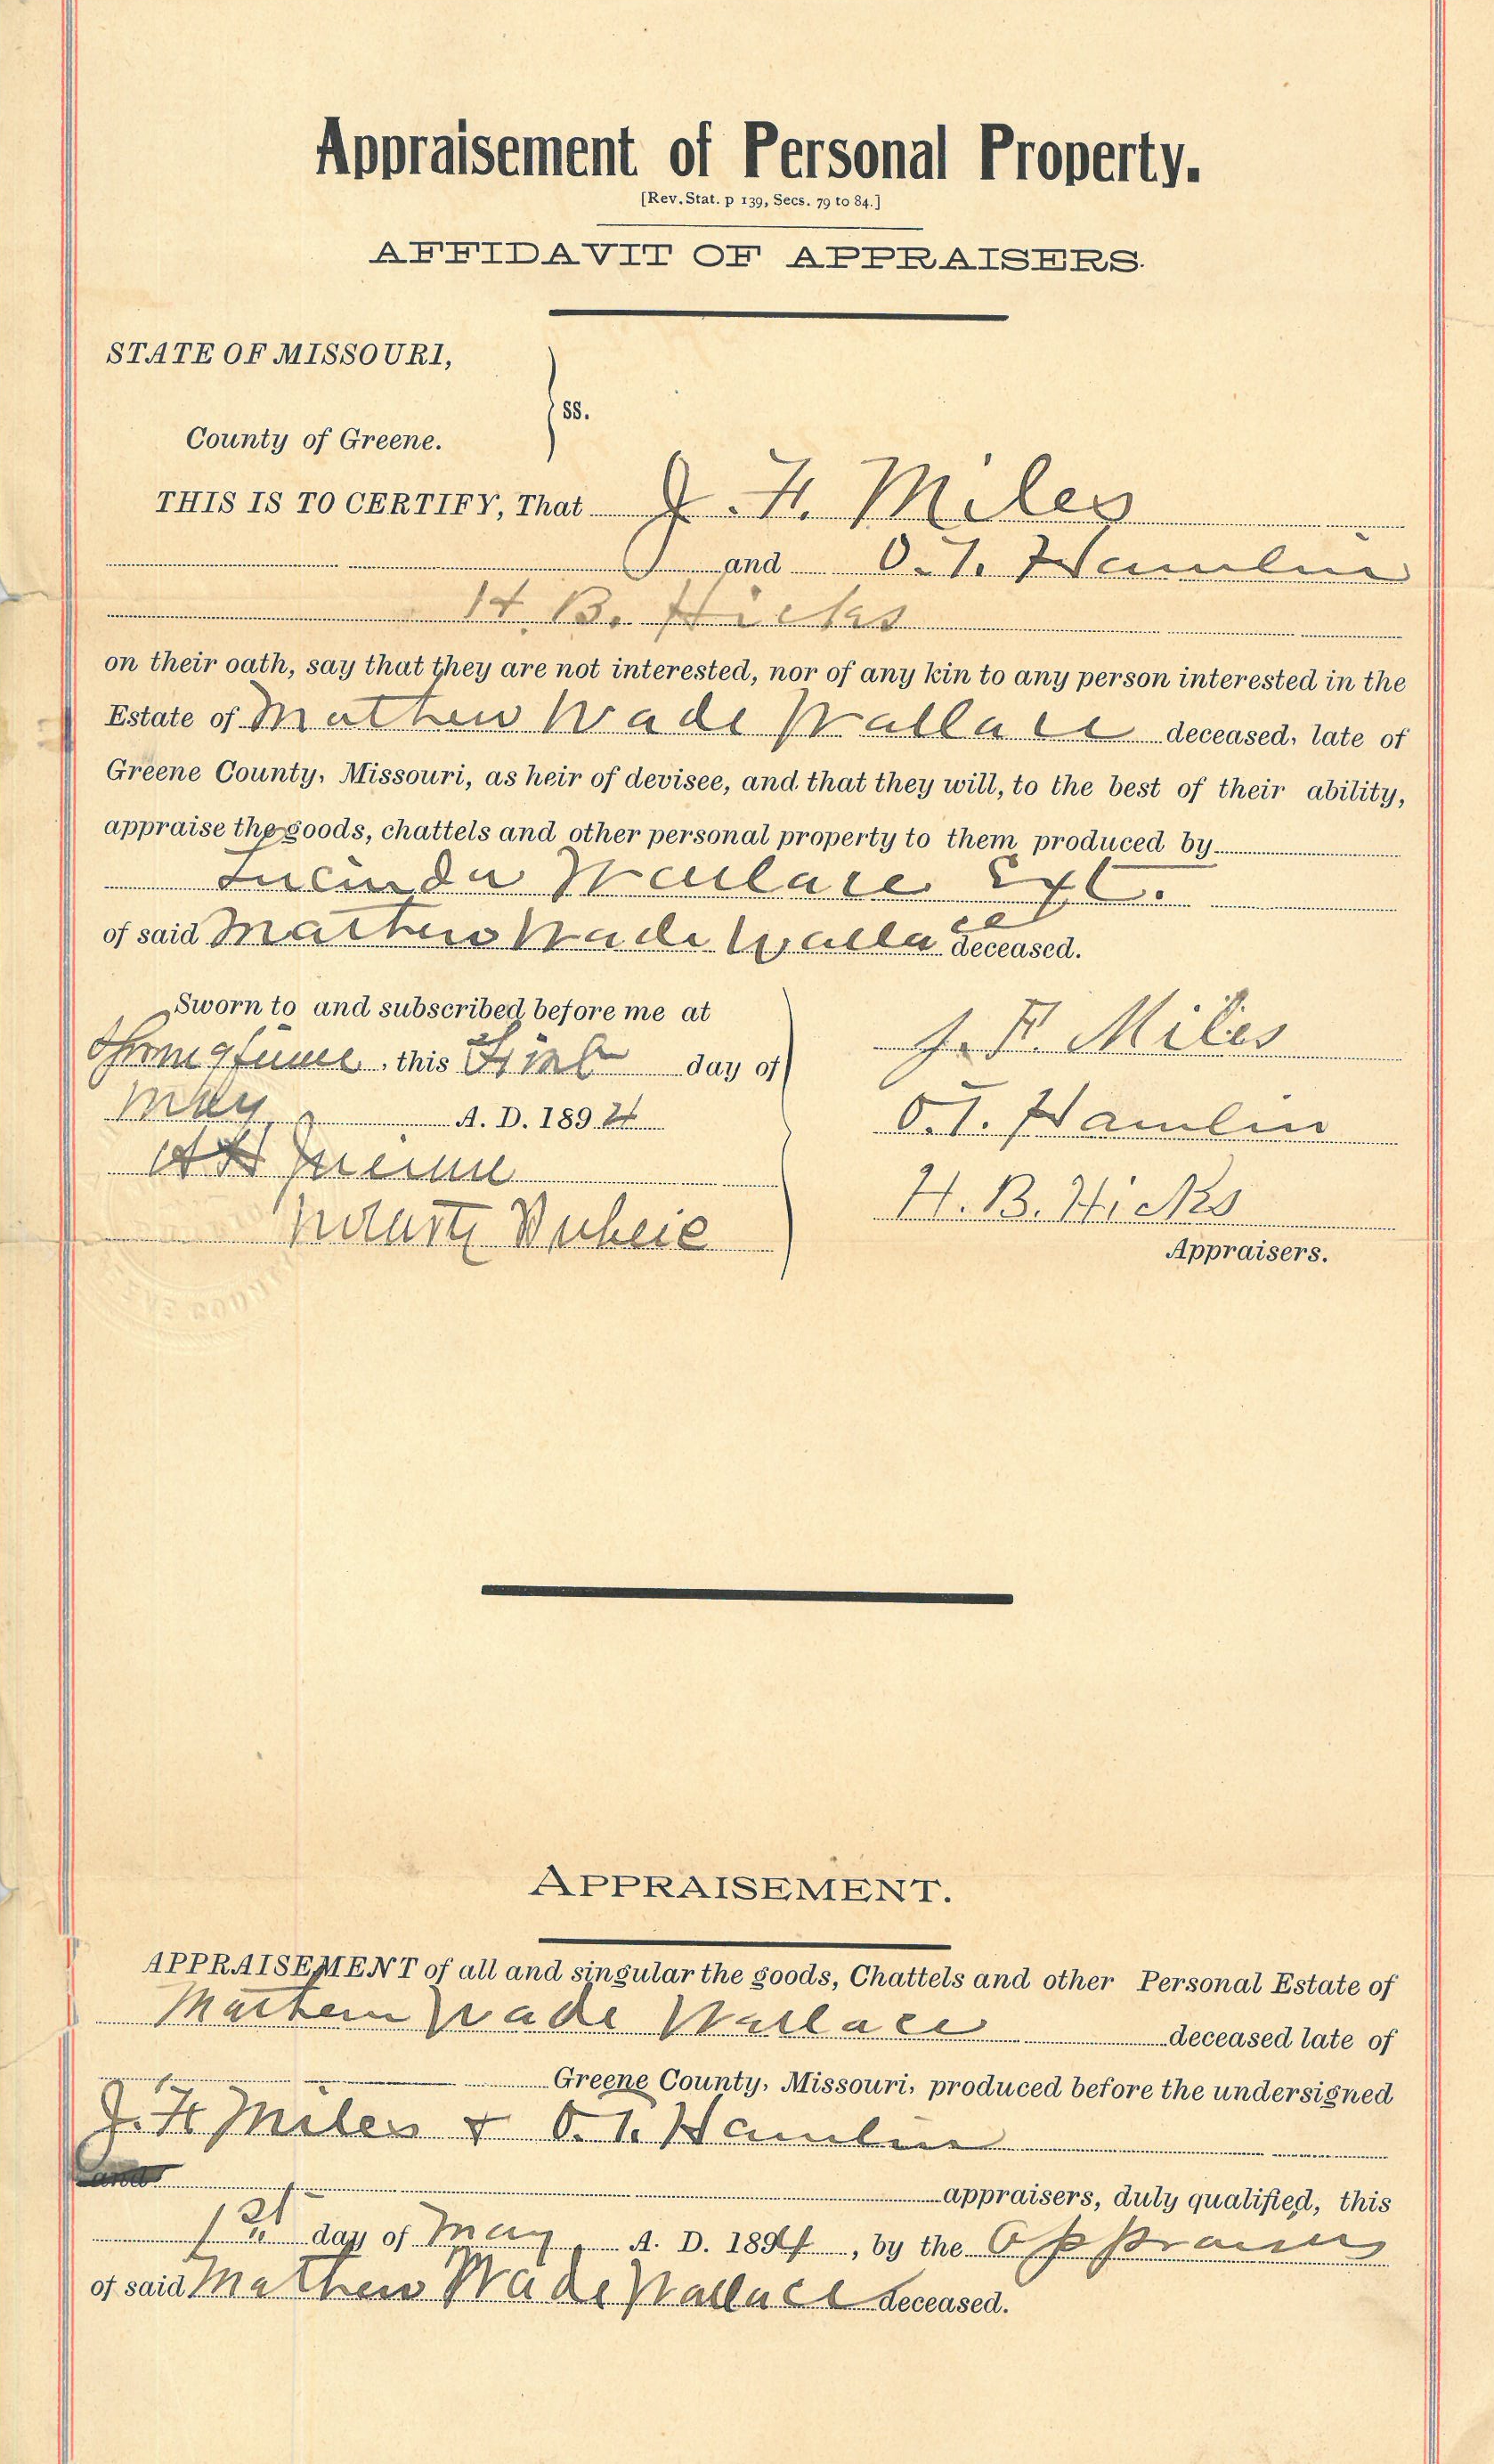 Appraisement of Personal Property.
[Rev. Stat. p 139, Secs. 79 to 84.]
AFFIDAVIT OF APPRAISERS.
STATE OF MISSOURI,
ss.
County of Greene.
THIS IS TO CERTIFY, That J. F. Miles
and O. T. Hamlin
H. B. Hicks
on their oath, say that they are not interested, nor of any kin to any person interested in the
Estate of Mathew Wade Wallace deceased, late of
Greene County, Missouri, as heir of devisee, and that they will, to the best of their ability,
appraise the goods, chattels and other personal property to them produced by
Lucinda Wallace Ext.
of said Mathew Wade Wallace deceased.
Sworn to and subscribed before me at
this First day of
May A. D. 1894
Notary Public
J. F. Miles
O. T. Hamlin
H. B. Hicks
Appraisers.
APPRAISEMENT.
APPRAISEMENT of all and singular the goods, Chattels and other Personal Estate of
Mathew Wade Wallace deceased late of
Greene County, Missouri, produced before the undersigned
J. F. Miles + O. T. Hamlin
and
appraisers, duly qualified, this
1st day of May A. D. 1894, by the
of said Mathew Wade Wallace deceased.